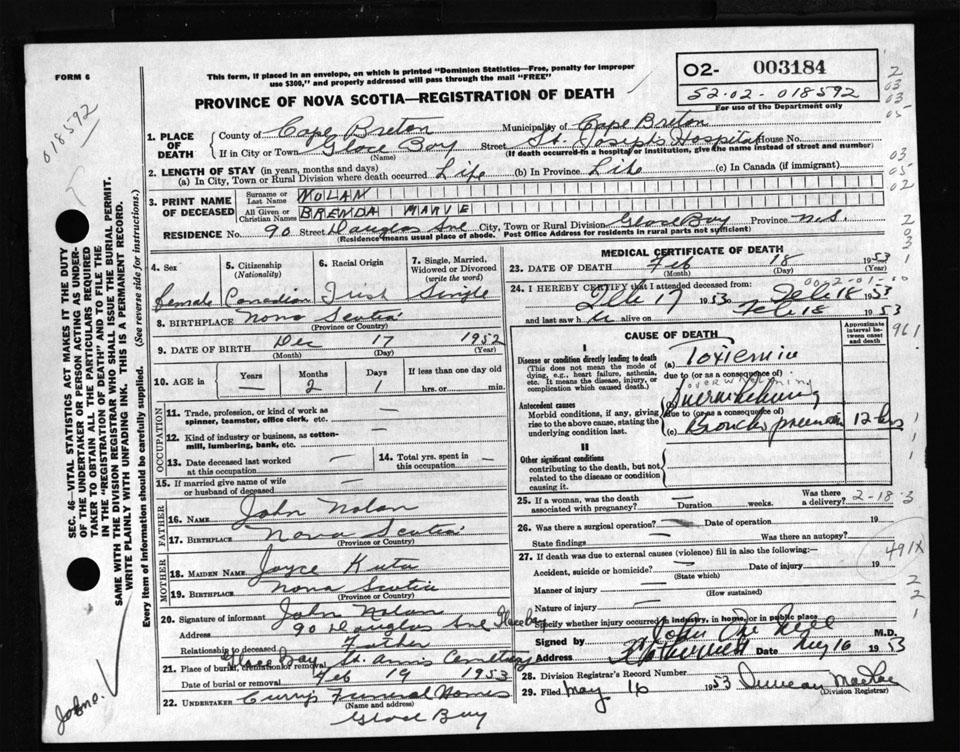 FORM 6
This form, if placed in an envelope, on which is printed "Dominion Statistics—Free, penalty for improper
use $300," and properly addressed will pass through the mail "FREE"
O2- 003184
52-02-018592
For use of the Department only
PROVINCE OF NOVA SCOTIA—REGISTRATION OF DEATH
018592
1. PLACE OF DEATH
County of Cape Breton Municipality of Cape Breton
If in City or Town Glace Bay Street St. Joseph Hospital House No.
(Name) (If death occurred in a hospital or institution, give the name instead of street and number)
2. LENGTH OF STAY (in years, months and days)
(a) In City, Town or Rural Division where death occurred Life (b) In Province Life (c) In Canada (if immigrant)
3. PRINT NAME OF DECEASED
Surname or Last Name NOLAN
All Given or Christian Names BRENDA MARIE
RESIDENCE No. 90 Street Douglas Ave City, Town or Rural Division Glace Bay Province N.S.
(Residence means usual place of abode. Post Office Address for residents in rural parts not sufficient)
4. Sex
female
5. Citizenship (Nationality)
Canadian
6. Racial Origin
Irish
7. Single, Married, Widowed or Divorced (write the word)
Single
8. BIRTHPLACE Nova Scotia
(Province or Country)
9. DATE OF BIRTH Dec 17 1952
(Month) (Day) (Year)
10. AGE in Years — Months 2 Days 1 If less than one day old hrs. or min.
OCCUPATION
11. Trade, profession, or kind of work as spinner, teamster, office clerk, etc. —
12. Kind of industry or business, as cotton-mill, lumbering, bank, etc. —
13. Date deceased last worked at this occupation —
14. Total yrs. spent in this occupation —
15. If married give name of wife or husband of deceased —
FATHER
16. NAME John Nolan
17. BIRTHPLACE Nova Scotia
(Province or Country)
MOTHER
18. MAIDEN NAME Joyce
19. BIRTHPLACE Nova Scotia
(Province or Country)
20. Signature of informant John Nolan
Address 90 Douglas Ave Glace Bay
Relationship to deceased Father
21. Place of burial, cremation or removal Glace Bay St. Ann's Cemetery
Date of burial or removal Feb 19 1953
22. UNDERTAKER Curry's Funeral Homes
(Name and address)
Glace Bay
MEDICAL CERTIFICATE OF DEATH
23. DATE OF DEATH Feb 18 1953
(Month) (Day) (Year)
24. I HEREBY CERTIFY that I attended deceased from:
Feb 17 1953 to Feb 18 1953
and last saw her alive on Feb 18 1953
CAUSE OF DEATH
Approximate interval between cause and death
I
Disease or condition directly leading to death
(This does not mean the mode of dying, e.g., heart failure, asthenia, etc. It means the disease, injury, or complication which caused death.)
(a) Toxiemia
due to (or as a consequence of)
overwhelming
Antecedent causes
Morbid conditions, if any, giving rise to the above cause, stating the underlying condition last.
(b) Overwhelming
due to (or as a consequence of)
(c) Broncho pneumonia 12 hrs
II
Other significant conditions
contributing to the death, but not related to the disease or condition causing it.
25. If a woman, was the death associated with pregnancy? — Duration weeks. Was there a delivery?
2-18-3
26. Was there a surgical operation? — Date of operation 19
State findings Was there an autopsy?
27. If death was due to external causes (violence) fill in also the following:—
Accident, suicide or homicide? — Date of injury 19
(State which)
491X
Manner of injury
(How sustained)
Nature of injury —
Specify whether injury occurred in industry, in home, or in public place
Signed by M.D.
Address Date May 16 1953
28. Division Registrar's Record Number
29. Filed May 16 1953 Duncan MacRae
(Division Registrar)
SEC. 46—VITAL STATISTICS ACT MAKES IT THE DUTY
OF THE UNDERTAKER OR PERSON ACTING AS UNDER-
TAKER TO OBTAIN ALL THE PARTICULARS REQUIRED
IN THE "REGISTRATION OF DEATH" AND TO FILE THE
SAME WITH THE DIVISION REGISTRAR WHO SHALL ISSUE THE BURIAL PERMIT.
WRITE PLAINLY WITH UNFADING INK. THIS IS A PERMANENT RECORD.
Every item of information should be carefully supplied. (See reverse side for instructions.)